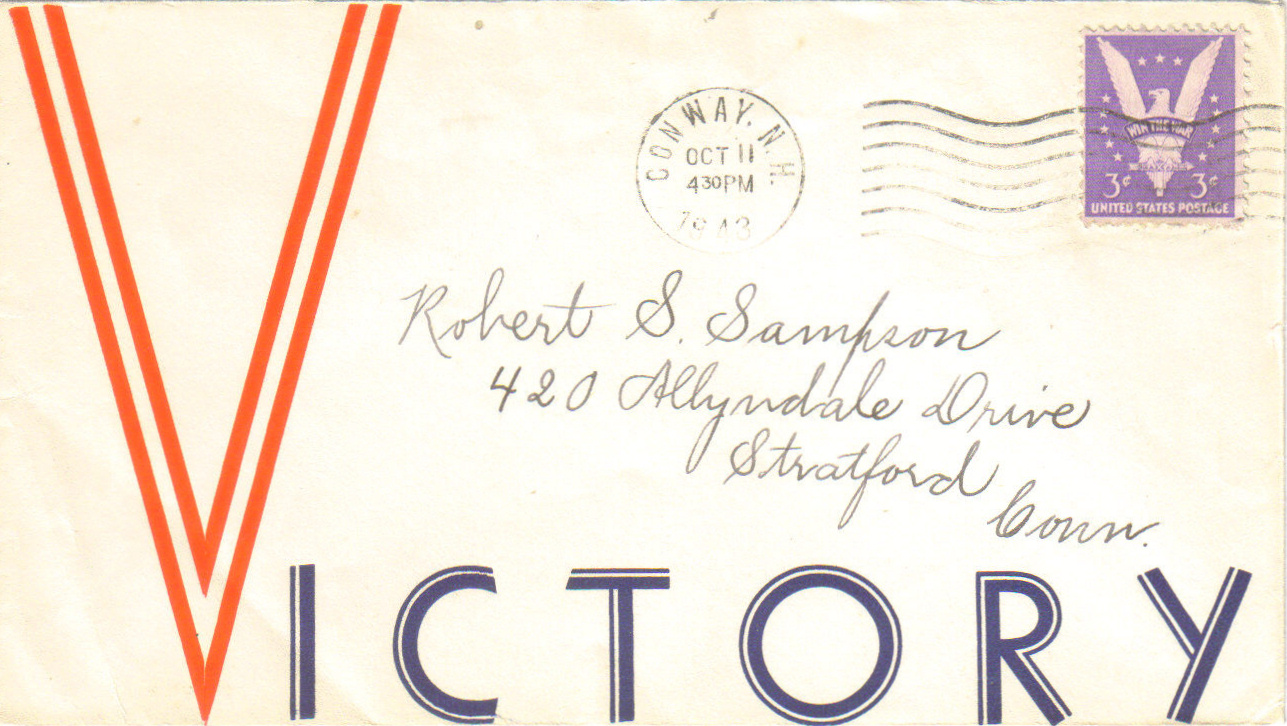 CONWAY, N.H.
OCT 11
4 30 PM
1943
WIN THE WAR
3¢ 3¢
UNITED STATES POSTAGE
Robert S. Sampson
420 Allyndale Drive
Stratford
Conn.
VICTORY